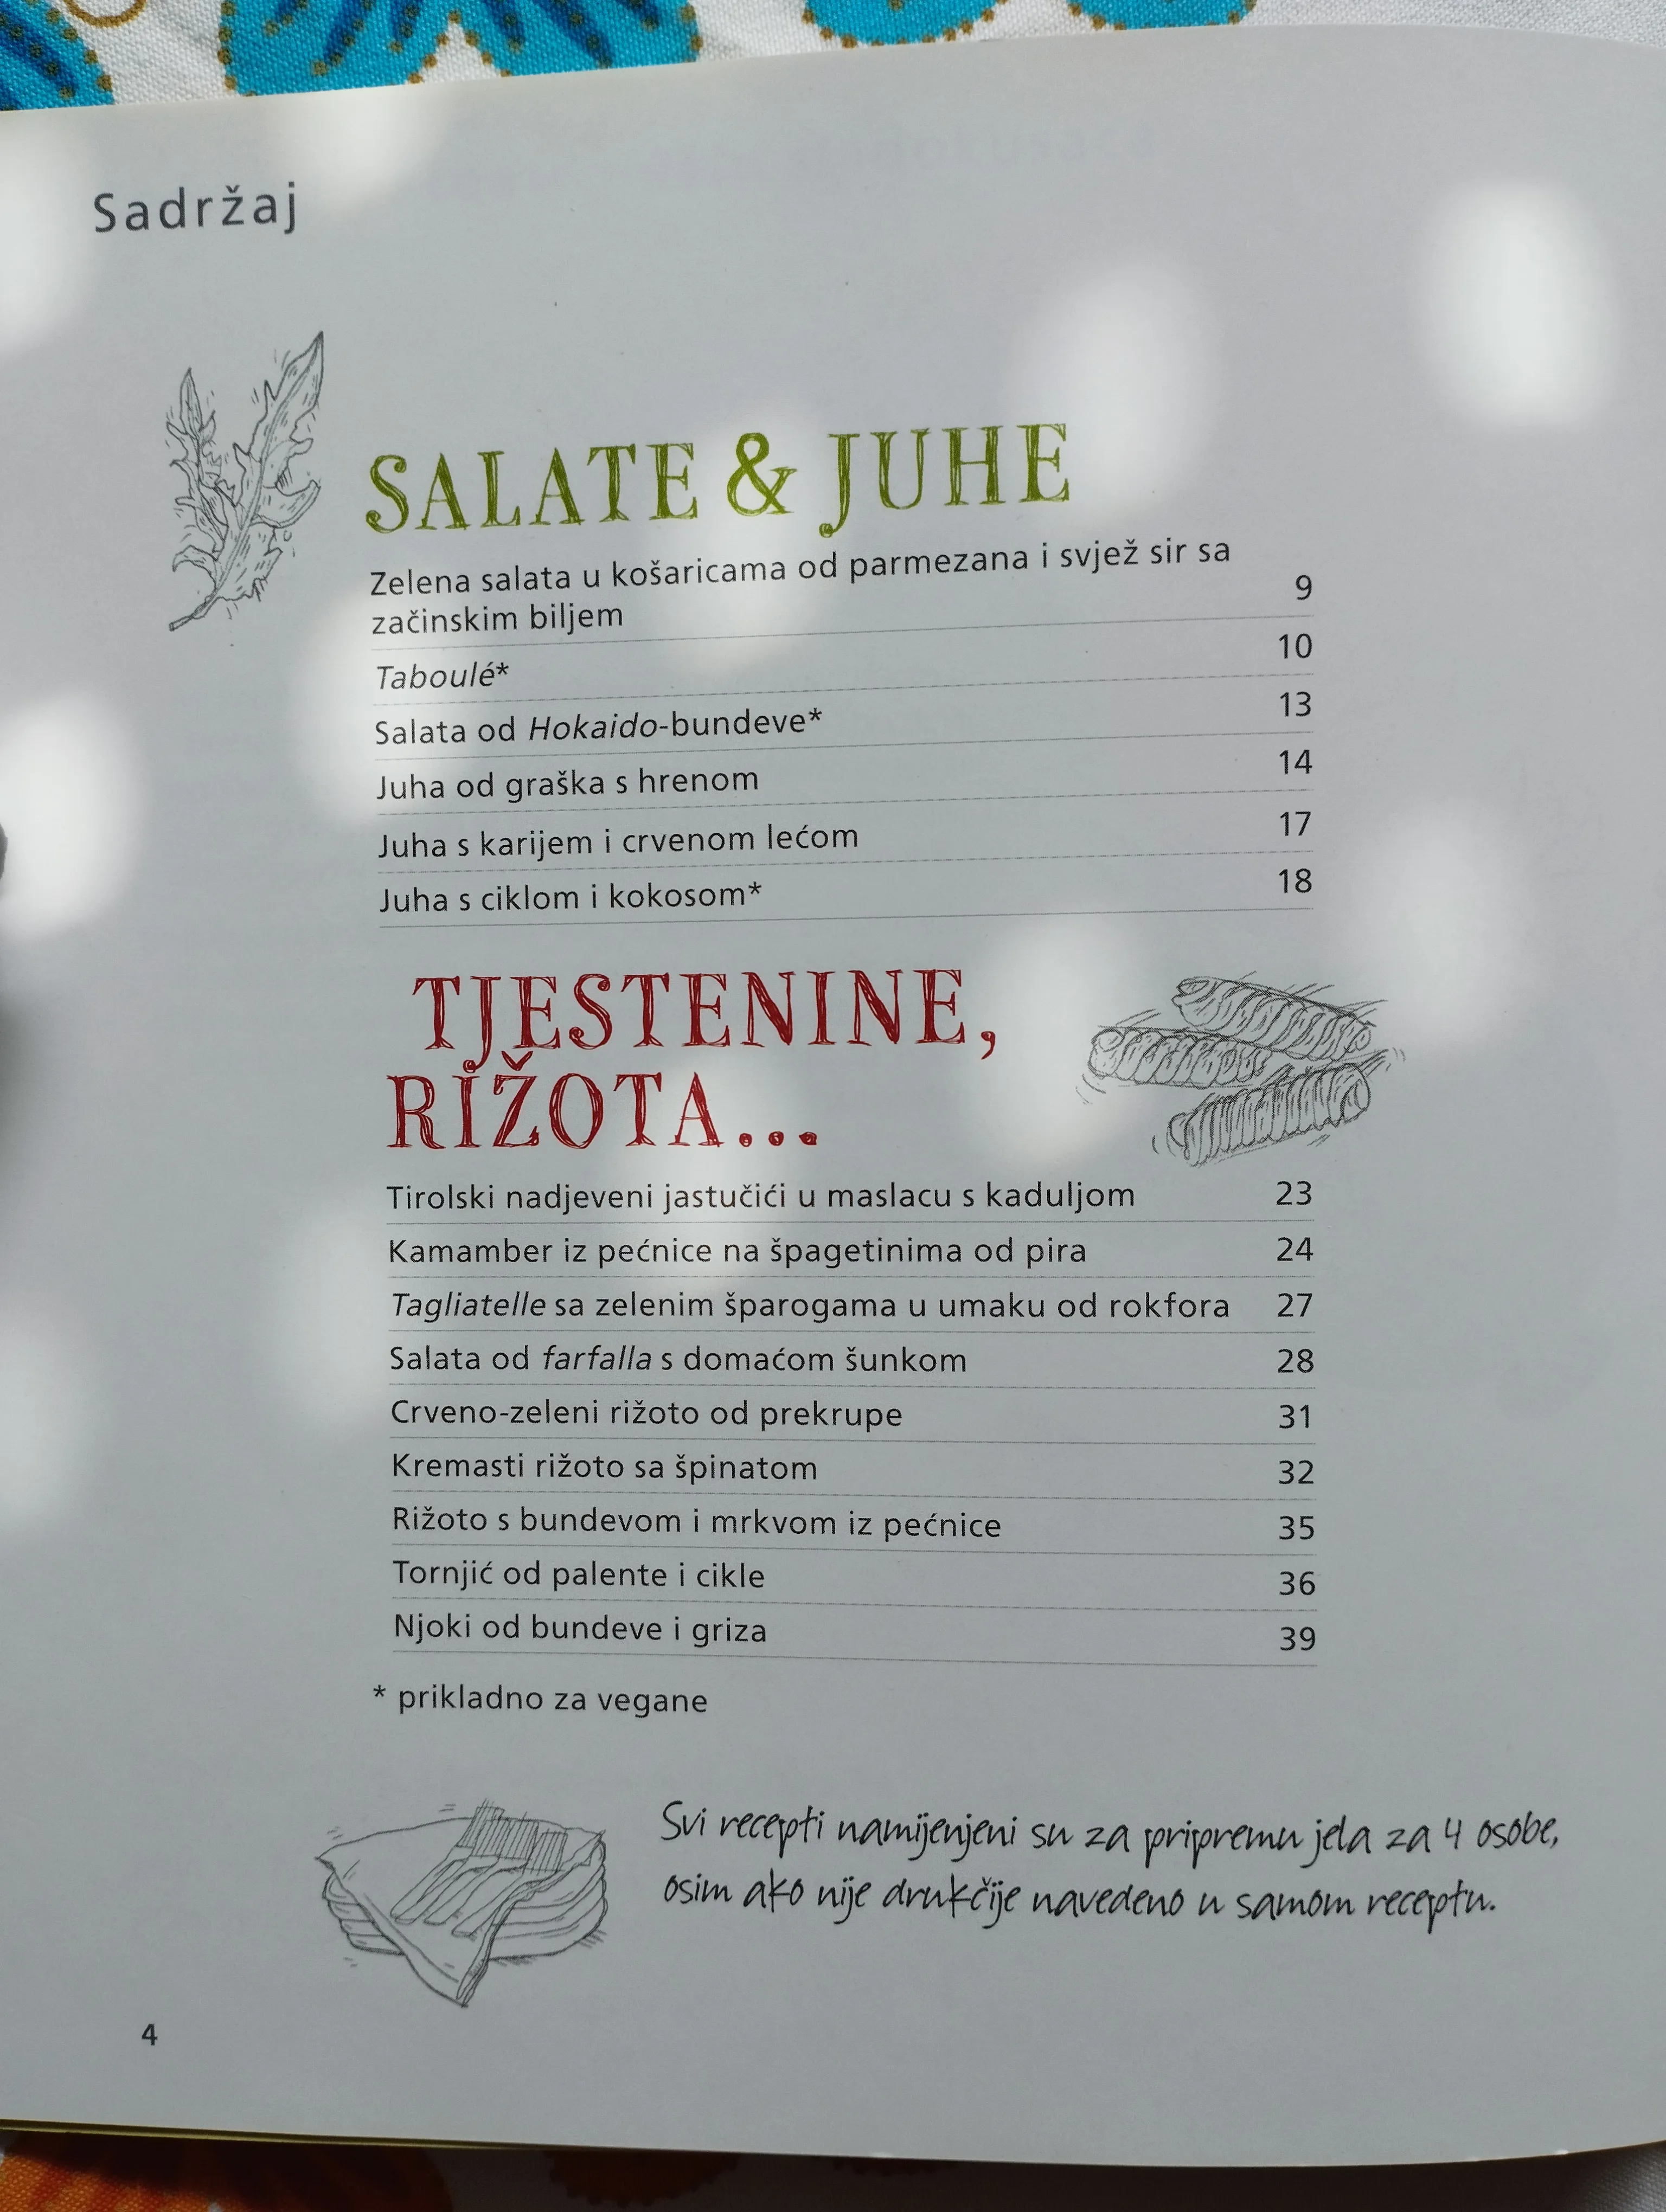 Sadržaj
SALATE & JUHE
Zelena salata u košaricama od parmezana i svjež sir sa
začinskim biljem 9
Taboulé* 10
Salata od Hokaido-bundeve* 13
Juha od graška s hrenom 14
Juha s karijem i crvenom lećom 17
Juha s ciklom i kokosom* 18
TJESTENINE,
RIŽOTA...
Tirolski nadjeveni jastučići u maslacu s kaduljom 23
Kamamber iz pećnice na špagetinima od pira 24
Tagliatelle sa zelenim šparogama u umaku od rokfora 27
Salata od farfalla s domaćom šunkom 28
Crveno-zeleni rižoto od prekrupe 31
Kremasti rižoto sa špinatom 32
Rižoto s bundevom i mrkvom iz pećnice 35
Tornjić od palente i cikle 36
Njoki od bundeve i griza 39
* prikladno za vegane
Svi recepti namijenjeni su za pripremu jela za 4 osobe,
osim ako nije drukčije navedeno u samom receptu.
4